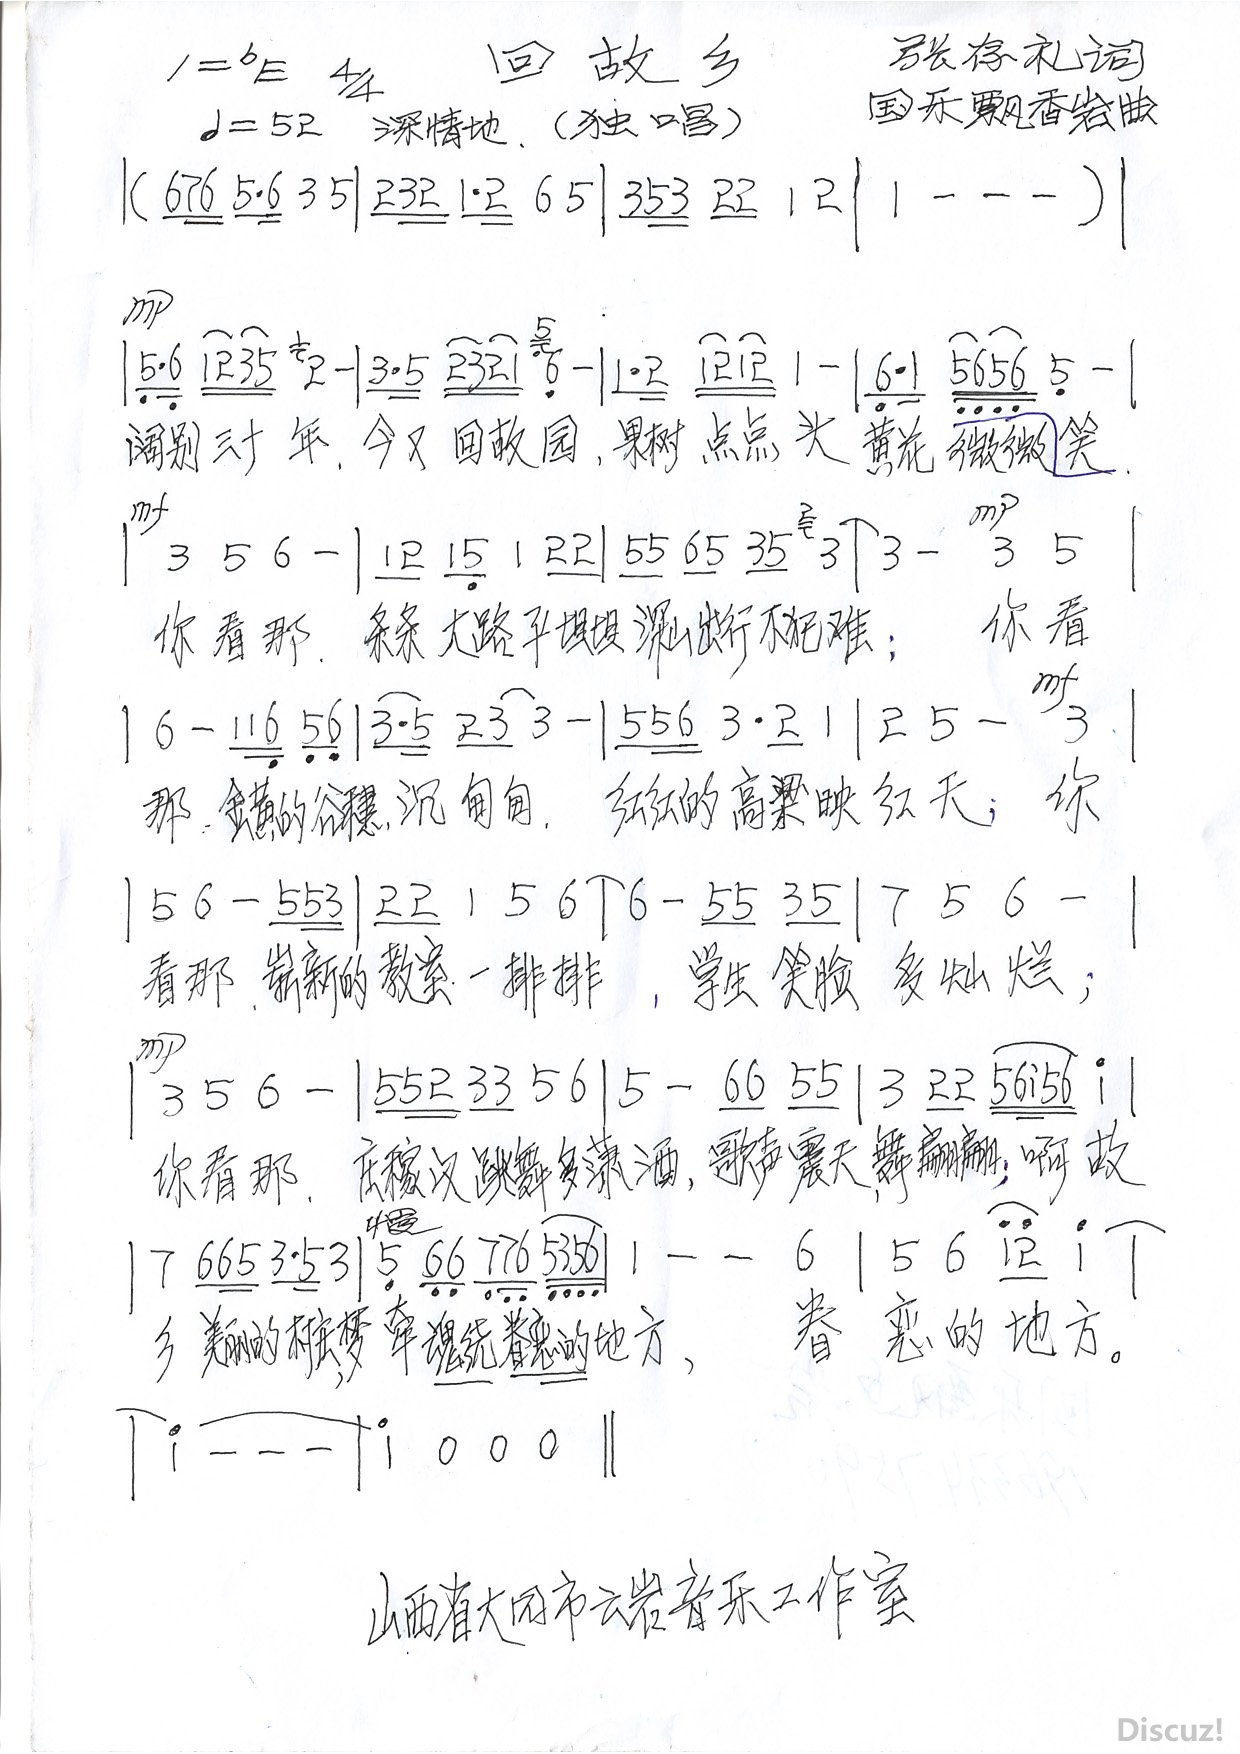 1=♭E 4/4 回故乡 张存礼词
♩=52 深情地.(独唱) 国乐飘香岩曲
|( 676 5·6 3 5 | 232 1·2 6 5 | 353 22 1 2 | 1 - - - ) |
mp
| 5·6 1235 2 - | 3·5 2321 5 6 - | 1·2 1212 1 - | 6·1 5656 5 - |
阔别三十年.今又回故园,果树点点头黄花微微笑.
mf mp
| 3 5 6 - | 12 15 1 22 | 55 65 35 2 3 | 3 - 3 5 |
你看那.条条大路平坦坦深山出行不犯难; 你看
mf
| 6 - 116 56 | 3·5 23 3 - | 556 3·2 1 | 2 5 - 3 |
那.金黄的谷穗沉甸甸.红红的高粱映红天; 你
| 5 6 - 553 | 22 1 5 6 | 6 - 55 35 | 7 5 6 - |
看那.崭新的教室一排排,学生笑脸多灿烂;
mp
| 3 5 6 - | 552 33 5 6 | 5 - 66 55 | 3 22 56i56 i |
你看那.庄稼汉跳舞多潇洒,歌声震天舞翩翩;啊故
慢
| 7 665 3·5 3 | 5 66 776 5356 | 1 - - 6 | 5 6 i2 i |
乡美丽的村庄,梦牵魂绕眷恋的地方, 眷恋的地方。
| i - - - | i 0 0 0 ‖
山西省大同市云岩音乐工作室
Discuz!